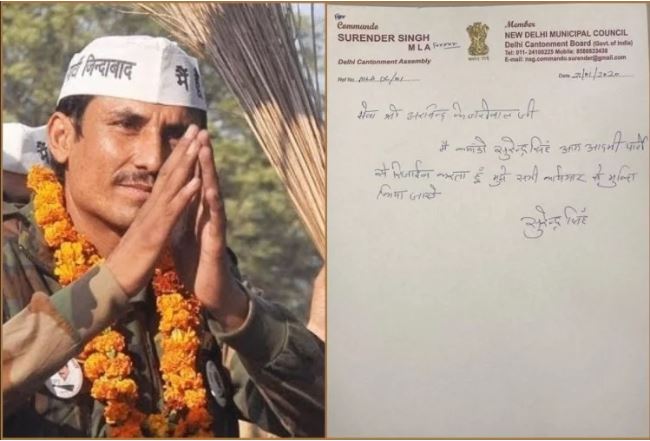 जिन्दाबाद मैं
Commando
SURENDER SINGH
M L A Former
Delhi Cantonment Assembly
Ref No.
Member
NEW DELHI MUNICIPAL COUNCIL
Delhi Cantonment Board (Govt. of India)
Tel: 011- 24100225 Mobile: 8588833438
E-mail: nsg.commando.surender@gmail.com
Date 21/01/2020
सेवा श्री अरविन्द केजरीवाल जी
मैं कमांडो सुरेन्द्र सिंह आम आदमी पार्टी
से रिजाईन करता हूँ मुझे सभी कार्यभार से मुक्ति
किया जावे
सुरेन्द्र सिंह